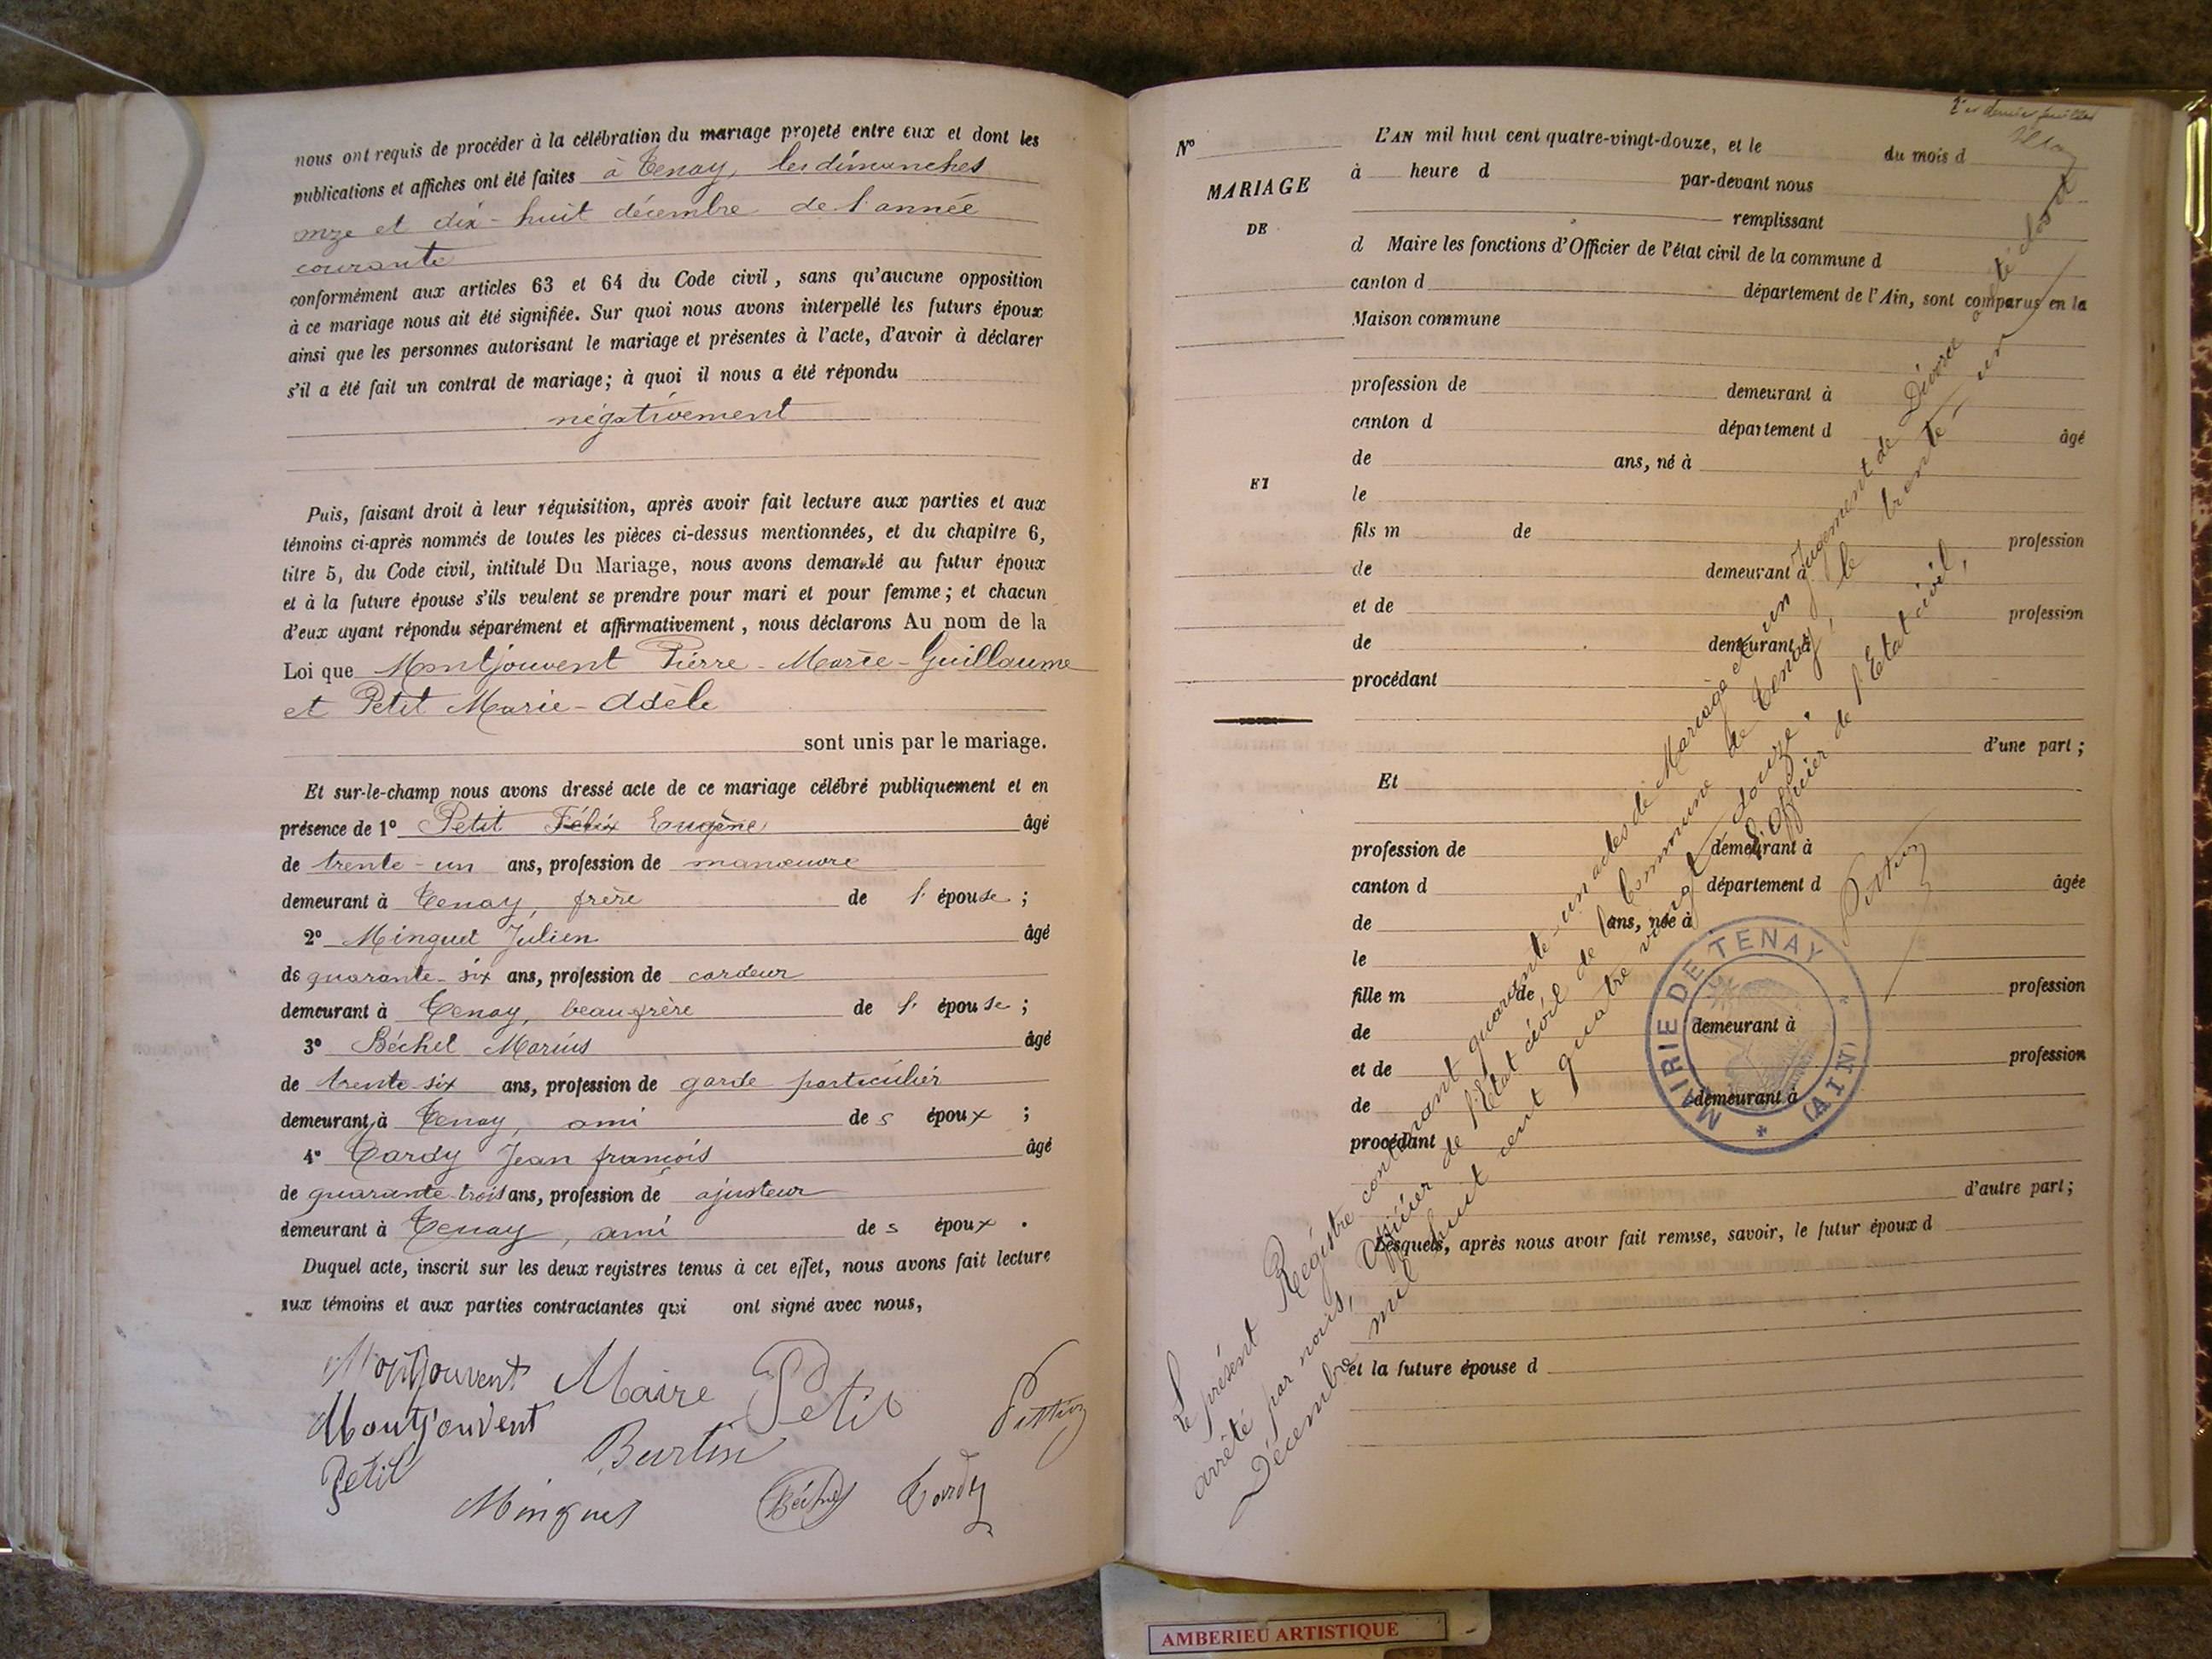 nous ont requis de procéder à la célébration du mariage projeté entre eux et dont les
publications et affiches ont été faites à Tenay, les dimanches
onze et dix-huit décembre de l'année
courante
conformément aux articles 63 et 64 du Code civil, sans qu'aucune opposition
à ce mariage nous ait été signifiée. Sur quoi nous avons interpellé les futurs époux
ainsi que les personnes autorisant le mariage et présentes à l'acte, d'avoir à déclarer
s'il a été fait un contrat de mariage; à quoi il nous a été répondu
négativement
Puis, faisant droit à leur réquisition, après avoir fait lecture aux parties et aux
témoins ci-après nommés de toutes les pièces ci-dessus mentionnées, et du chapitre 6,
titre 5, du Code civil, intitulé Du Mariage, nous avons demandé au futur époux
et à la future épouse s'ils veulent se prendre pour mari et pour femme; et chacun
d'eux ayant répondu séparément et affirmativement, nous déclarons Au nom de la
Loi que Montjouvent Pierre-Marie-Guillaume
et Petit Marie-Adèle
sont unis par le mariage.
Et sur-le-champ nous avons dressé acte de ce mariage célébré publiquement et en
présence de 1° Petit Félix Eugène âgé
de trente-un ans, profession de manœuvre
demeurant à Tenay, frère de l'épouse;
2° Minguet Julien âgé
de quarante-six ans, profession de cardeur
demeurant à Tenay, beau-frère de l'épouse;
3° Béchet Marius âgé
de trente-six ans, profession de garde particulier
demeurant à Tenay, ami des époux;
4° Tardy Jean françois âgé
de quarante-trois ans, profession de ajusteur
demeurant à Tenay, ami des époux.
Duquel acte, inscrit sur les deux registres tenus à cet effet, nous avons fait lecture
aux témoins et aux parties contractantes qui ont signé avec nous,
Montjouvent Maire Petit
Montjouvent Burtin
Petit
Minguet Béchet Tardy
N°
MARIAGE
DE
ET
L'AN mil huit cent quatre-vingt-douze, et le du mois d
à heure d par-devant nous
remplissant
d Maire les fonctions d'Officier de l'état civil de la commune d
canton d département de l'Ain, sont comparus en la
Maison commune
profession de demeurant à
canton d département d âgé
de ans, né à
le
fils m de profession
de demeurant à
et de profession
de demeurant à
procédant
d'une part;
Et
profession de demeurant à
canton d département d âgée
de ans, née à
le
fille m de profession
de demeurant à
et de profession
de demeurant à
procédant
d'autre part;
Lesquels, après nous avoir fait remise, savoir, le futur époux d
et la future épouse d
Le présent Régistre contenant quarante-un actes de Mariage et un Jugement de Divorce a été clos et
arrêté par nous, Officier de l'Etat civil de la Commune de Tenay, le trente-un
Décembre mil huit cent quatre vingt douze.
L'Officier de l'Etat civil,
MAIRIE DE TENAY
(AIN)
AMBERIEU ARTISTIQUE